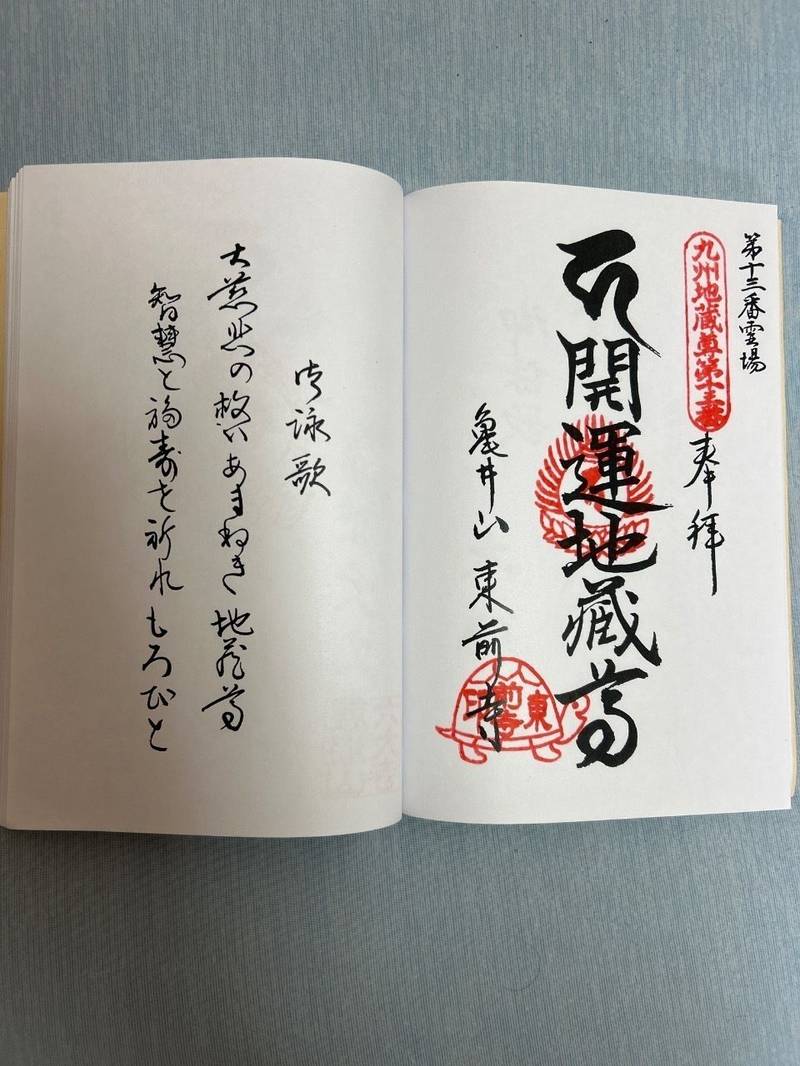 第十三番霊場
九州地蔵尊第十三番
奉拝
開運地蔵尊
亀井山 東前寺
東前寺印
御詠歌
大慈悲の救いあまねき 地蔵尊
智慧と福寿を祈れ もろびと